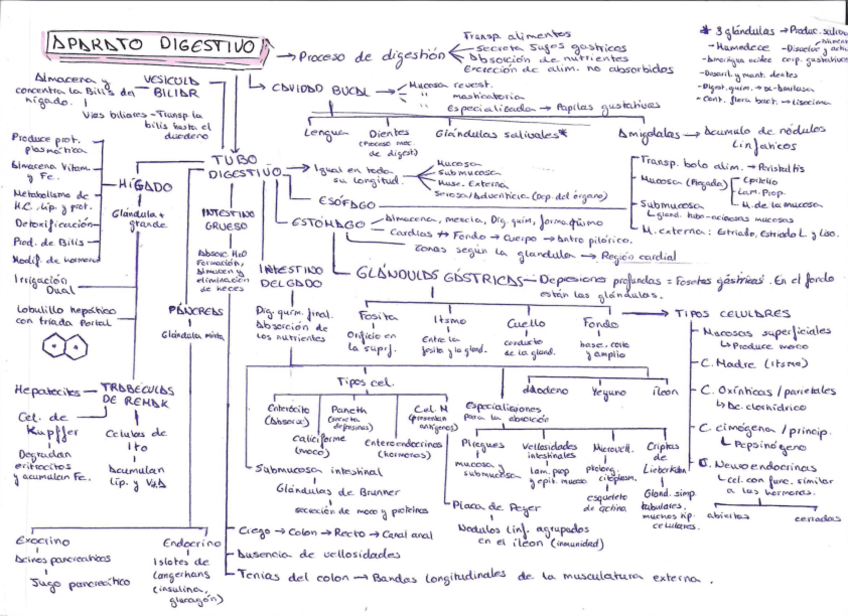 APARATO DIGESTIVO
→ Proceso de digestión
Transp. alimentos
Secreta jugos gástricos
Absorción de nutrientes
Excreción de alim. no absorbidos
* 3 glándulas → Produc. saliva
- Humedece
- Disuelve y
- Amortigua acidez
corp. gustativos
- Desaril. y mant. dientes
- Digest. quim.
- Cont. flora bact. → Lisocima
Almacena y
concentra la Bilis del
hígado.
VESICULA
BILIAR
Vías biliares - Transp. la
bilis hasta el
duodeno
CAVIDAD BUCAL
Mucosa revest.
" masticatoria
" Especializada → Papilas gustativas
Lengua
Dientes
(Proceso mec.
de digest)
Glándulas salivales*
Amígdalas → Acumulo de nódulos
linfaticos
TUBO
DIGESTIVO
→ Igual en toda
su longitud.
Mucosa
Submucosa
Musc. Externa
Serosa/Adventicia (Dep. del órgano)
ESÓFAGO
Transp. bolo alim. → Peristaltis
Mucosa (Plegada)
Epitelio
Lam. Prop.
M. de la mucosa
Submucosa
Gland. tubo-acinosas mucosas
M. externa: Estriado, Estriado L y Liso.
Produce prot.
plasmática
Almacena Vitam.
y Fe.
Metabolismo de
H.C, lip. y prot.
Detoxificación
Prod. de Bilis
Modif. de hormonas
HÍGADO
Glándula +
grande
Irrigación
Dual
Lobulillo hepático
con triada Portal
ESTÓMAGO
Almacena, mezcla, Dig. quim, forma quimo
Cardias → Fondo → Cuerpo → Antro pilórico.
Zonas según la glandula → Región cardial
INTESTINO
GRUESO
Absorc. H2O
Formación,
Almacen y
eliminación
de heces
INTESTINO
DELGADO
Dig. quim. final.
Absorción de
los nutrientes
GLÁNDULAS GÁSTRICAS - Depresiones profundas = Fosetas gástricas. En el fondo
están las glándulas.
Fosita
Orificio en
la superf.
Itsmo
Entre la
fosita y la gland.
Cuello
conducto
de la gland.
Fondo
base, corto
y amplio
→ TIPOS CELULARES
Mucosas superficiales
Produce moco
C. Madre (itsmo)
C. Oxínticas / parietales
Ac. clorhídrico
C. cimógena / princip.
Pepsinógeno
C. Neuroendocrinas
Cel. con func. similar
a las hormonas.
abiertas
cerradas
PÁNCREAS
Glándula mixta
Hepatocitos
TRABECULAS
DE REMAK
Cel. de
Kupffer
Degradan
eritrocitos
y acumulan Fe.
Celulas de
Ito
Acumulan
Lip. y Vit.A
Tipos cel.
Enterocito
(Absorbe)
Caliciforme
(moco)
Paneth
Enteroendocrinas
(hormonas)
Cel. M
(presentan
antígenos)
duodeno
Yeyuno
íleon
Especializaciones
para la absorción
Pliegues
mucosa y
submucosa
Vellosidades
intestinales
lam. prop
y epit. mucosa
Microvell.
prolong.
citoplasm.
esqueleto
de actina
Criptas
de
Lieberkühn
Gland. simp.
tubulares,
muchos tip.
celulares.
Submucosa intestinal
Glándulas de Brunner
secreción de moco y proteínas
Placa de Peyer
Nodulos linf. agrupados
en el íleon (inmunidad)
Exocrino
Acines pancreáticos
Jugo pancreático
Endocrino
Islotes de
Langerhans
(insulina,
glucagón)
Ciego → Colon → Recto → Canal anal
Ausencia de vellosidades
Tenias del colon → Bandas longitudinales de la musculatura externa.